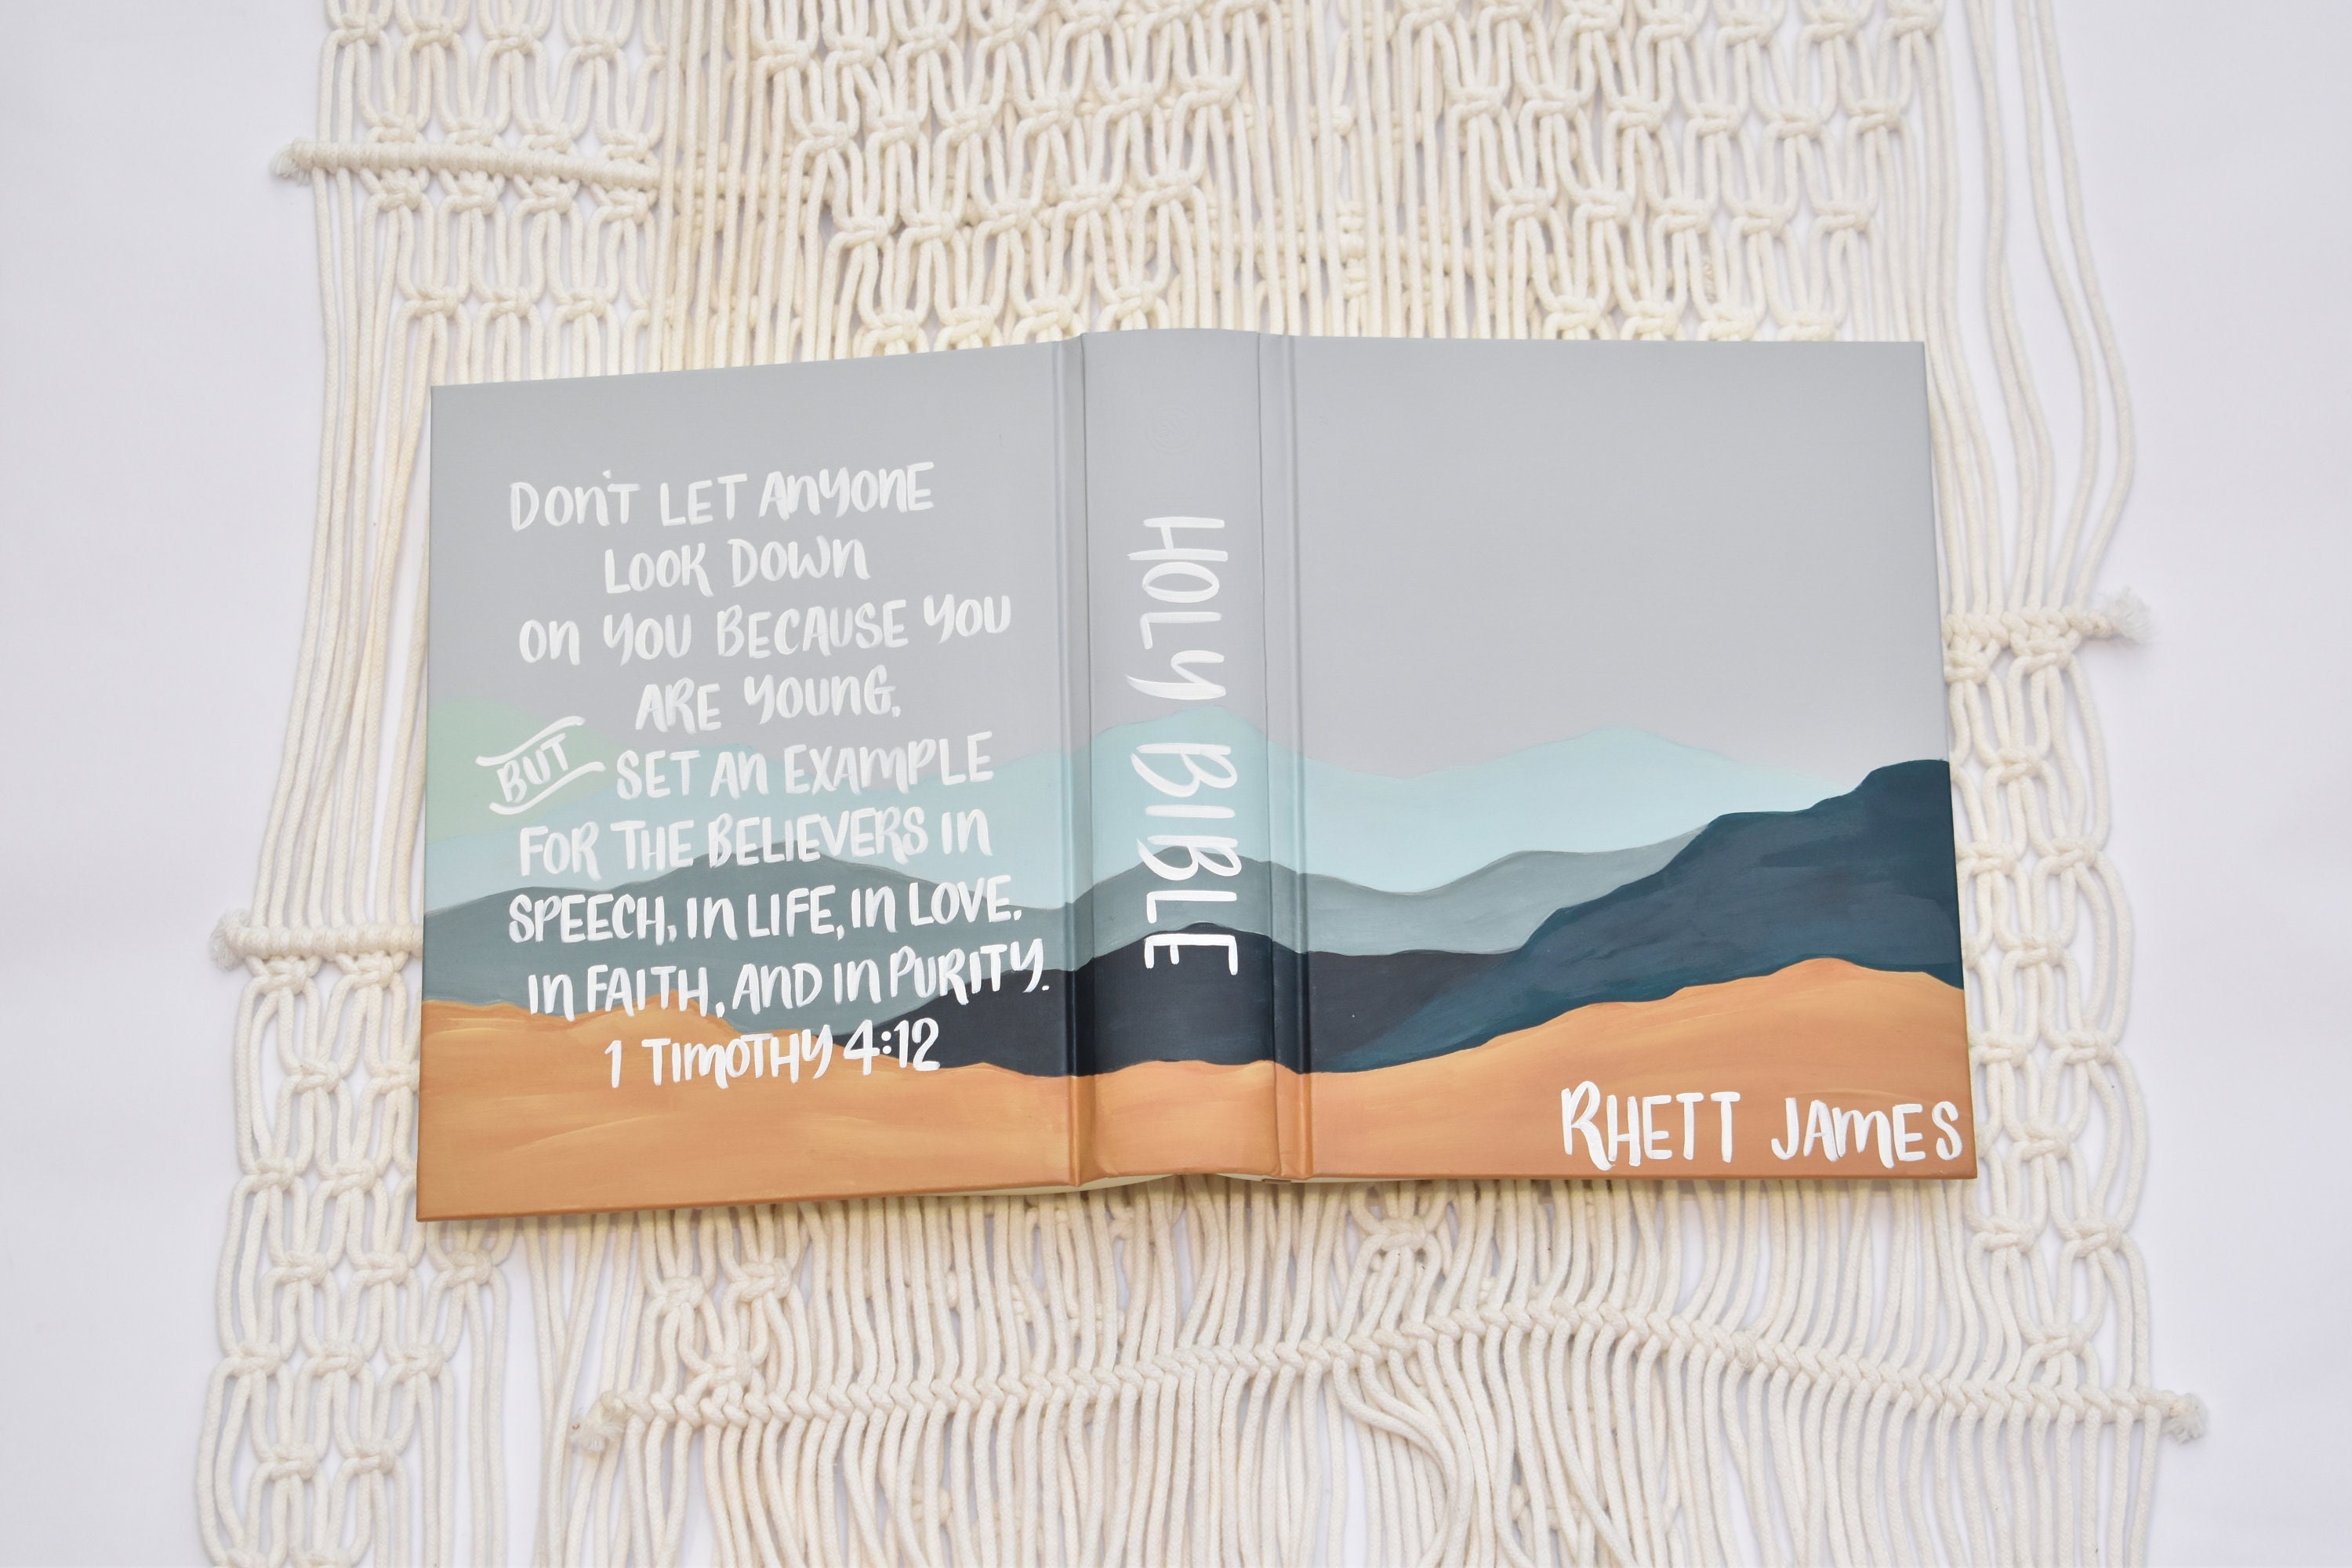 DON'T LET ANYONE
LOOK DOWN
ON YOU BECAUSE YOU
ARE YOUNG,
BUT SET AN EXAMPLE
FOR THE BELIEVERS IN
SPEECH, IN LIFE, IN LOVE,
IN FAITH, AND IN PURITY.
1 TIMOTHY 4:12
HOLY BIBLE
RHETT JAMES